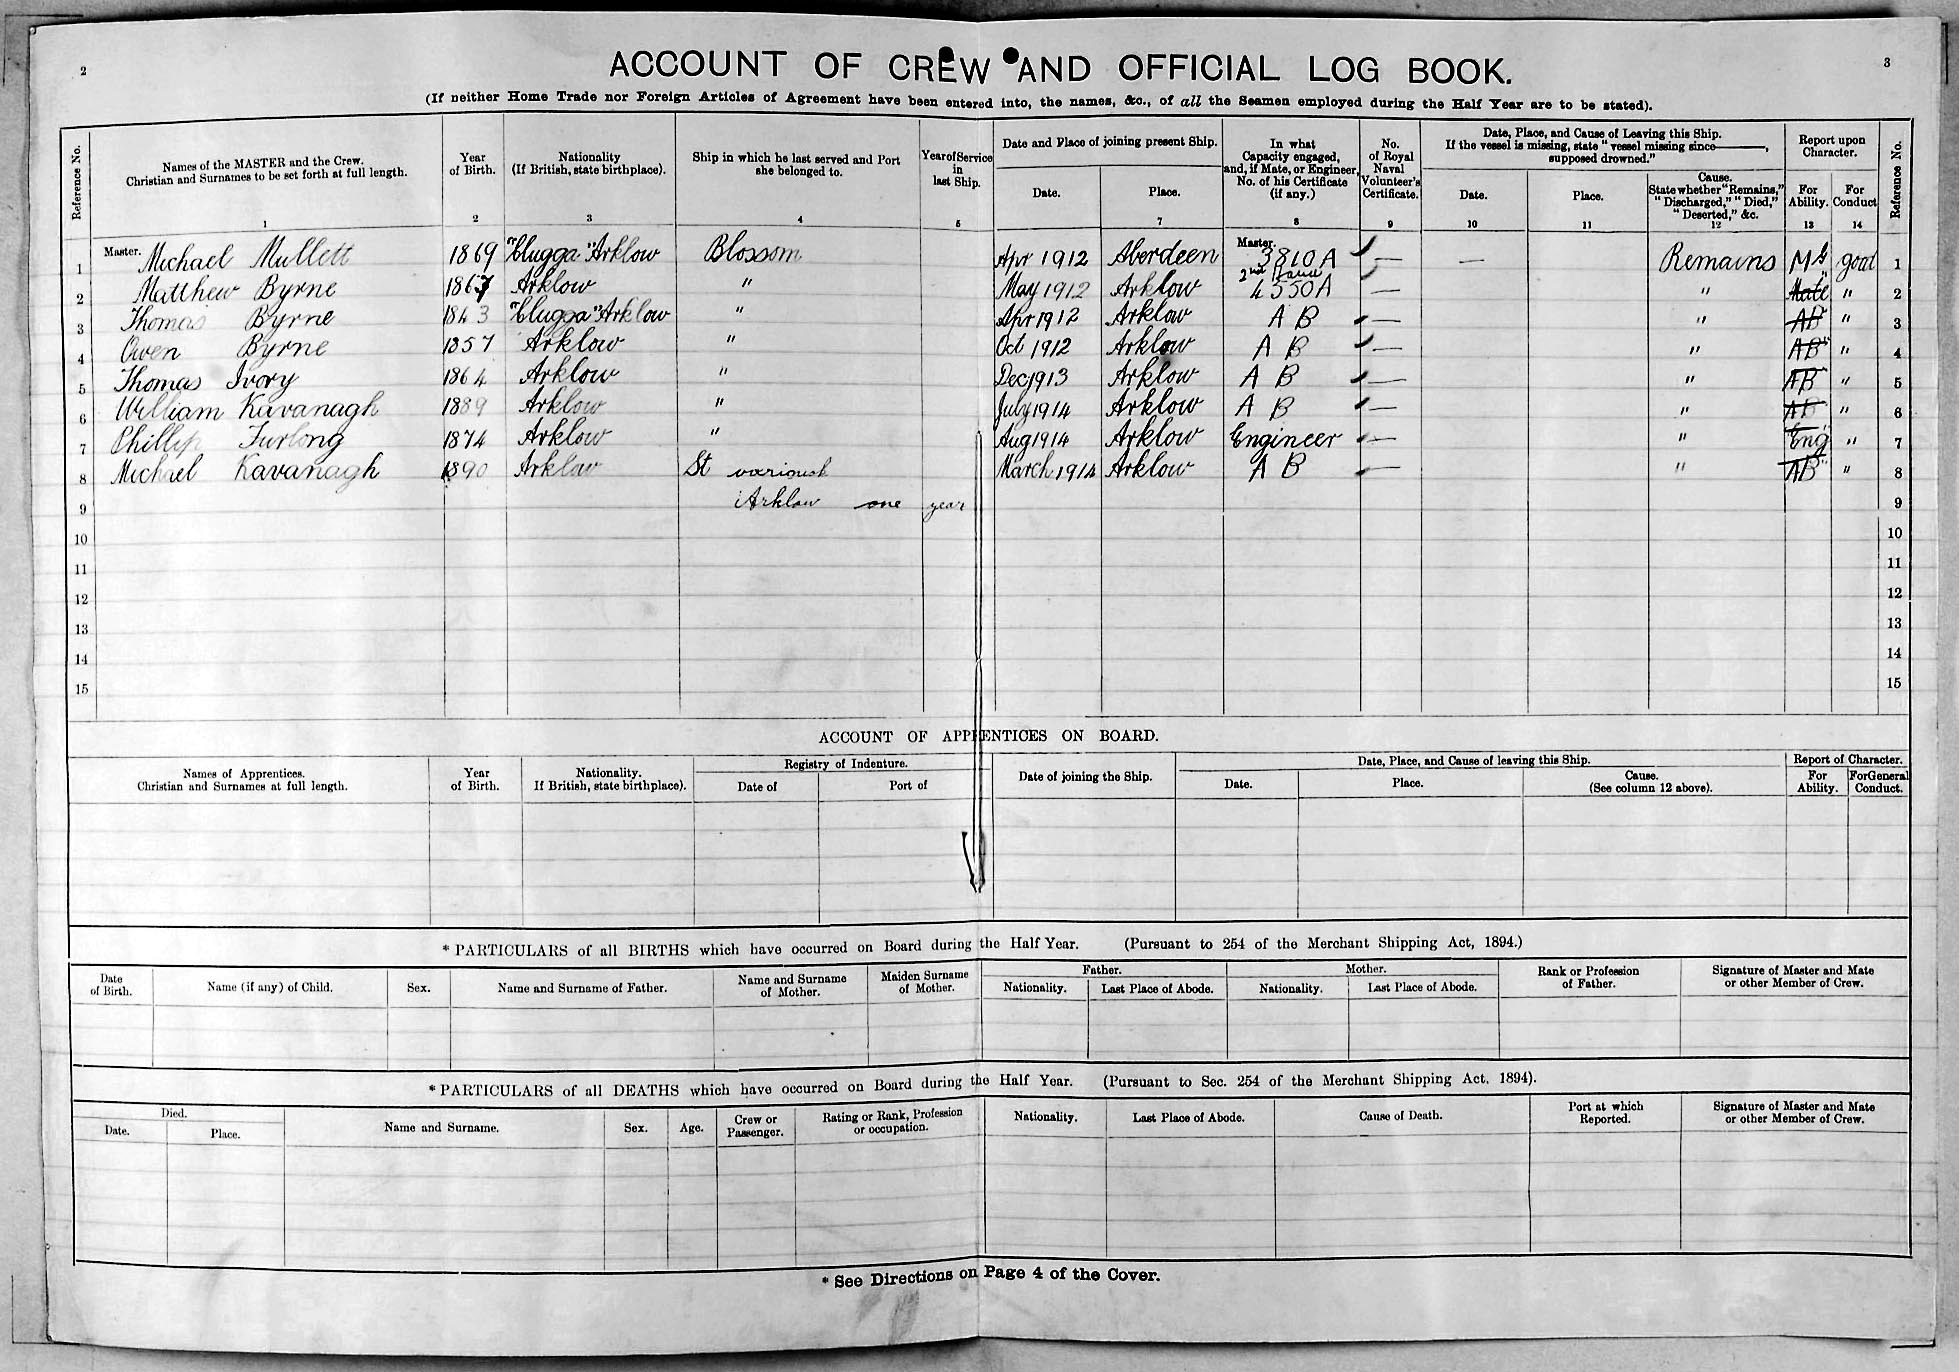 2
3
ACCOUNT OF CREW AND OFFICIAL LOG BOOK.
(If neither Home Trade nor Foreign Articles of Agreement have been entered into, the names, &c., of all the Seamen employed during the Half Year are to be stated).
Reference No.
Names of the MASTER and the Crew.
Christian and Surnames to be set forth at full length.
1
Year
of Birth.
2
Nationality
(If British, state birthplace).
3
Ship in which he last served and Port
she belonged to.
4
Year of Service
in
last Ship.
5
Date and Place of joining present Ship.
Date.
Place.
7
In what
Capacity engaged,
and, if Mate, or Engineer,
No. of his Certificate
(if any.)
8
No.
of Royal
Naval
Volunteer's
Certificate.
9
Date, Place, and Cause of Leaving this Ship.
If the vessel is missing, state "vessel missing since ——,
supposed drowned."
Date.
10
Place.
11
Cause.
State whether "Remains,"
"Discharged," "Died,"
"Deserted," &c.
12
Report upon
Character.
For
Ability.
13
For
Conduct
14
Reference No.
1 Master. Michael Mullett 1869 "Clugga" Arklow Blossom Apr 1912 Aberdeen Master. 3810A — — Remains good 1
2 Matthew Byrne 1867 Arklow " May 1912 Arklow 2nd Hand 4550A — " Mate " 2
3 Thomas Byrne 1843 "Clugga" Arklow " Apr 1912 Arklow A B — " AB " 3
4 Owen Byrne 1857 Arklow " Oct 1912 Arklow A B — " AB " 4
5 Thomas Ivory 1864 Arklow " Dec 1913 Arklow A B — " AB " 5
6 William Kavanagh 1889 Arklow " July 1914 Arklow A B — " AB " 6
7 Phillip Furlong 1874 Arklow " Aug 1914 Arklow Engineer — " Eng " 7
8 Michael Kavanagh 1890 Arklow St March 1914 Arklow A B — " AB " 8
9 Arklow one year 9
10 10
11 11
12 12
13 13
14 14
15 15
ACCOUNT OF APPRENTICES ON BOARD.
Names of Apprentices.
Christian and Surnames at full length.
Year
of Birth.
Nationality.
If British, state birthplace).
Registry of Indenture.
Date of
Port of
Date of joining the Ship.
Date, Place, and Cause of leaving this Ship.
Date.
Place.
Cause.
(See column 12 above).
Report of Character.
For
Ability.
For General
Conduct.
* PARTICULARS of all BIRTHS which have occurred on Board during the Half Year. (Pursuant to 254 of the Merchant Shipping Act, 1894.)
Date
of Birth.
Name (if any) of Child.
Sex.
Name and Surname of Father.
Name and Surname
of Mother.
Maiden Surname
of Mother.
Father.
Nationality.
Last Place of Abode.
Mother.
Nationality.
Last Place of Abode.
Rank or Profession
of Father.
Signature of Master and Mate
or other Member of Crew.
* PARTICULARS of all DEATHS which have occurred on Board during the Half Year. (Pursuant to Sec. 254 of the Merchant Shipping Act, 1894).
Died.
Date.
Place.
Name and Surname.
Sex.
Age.
Crew or
Passenger.
Rating or Rank, Profession
or occupation.
Nationality.
Last Place of Abode.
Cause of Death.
Port at which
Reported.
Signature of Master and Mate
or other Member of Crew.
* See Directions on Page 4 of the Cover.